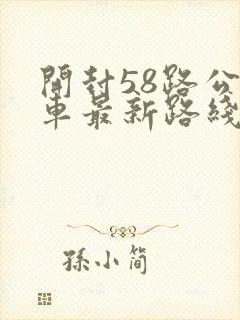 開封58路公
車最新路綫
孫小簡